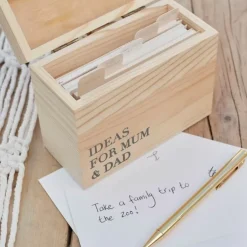 IDEAS
FOR MUM
& DAD
Take a family trip to
the zoo!